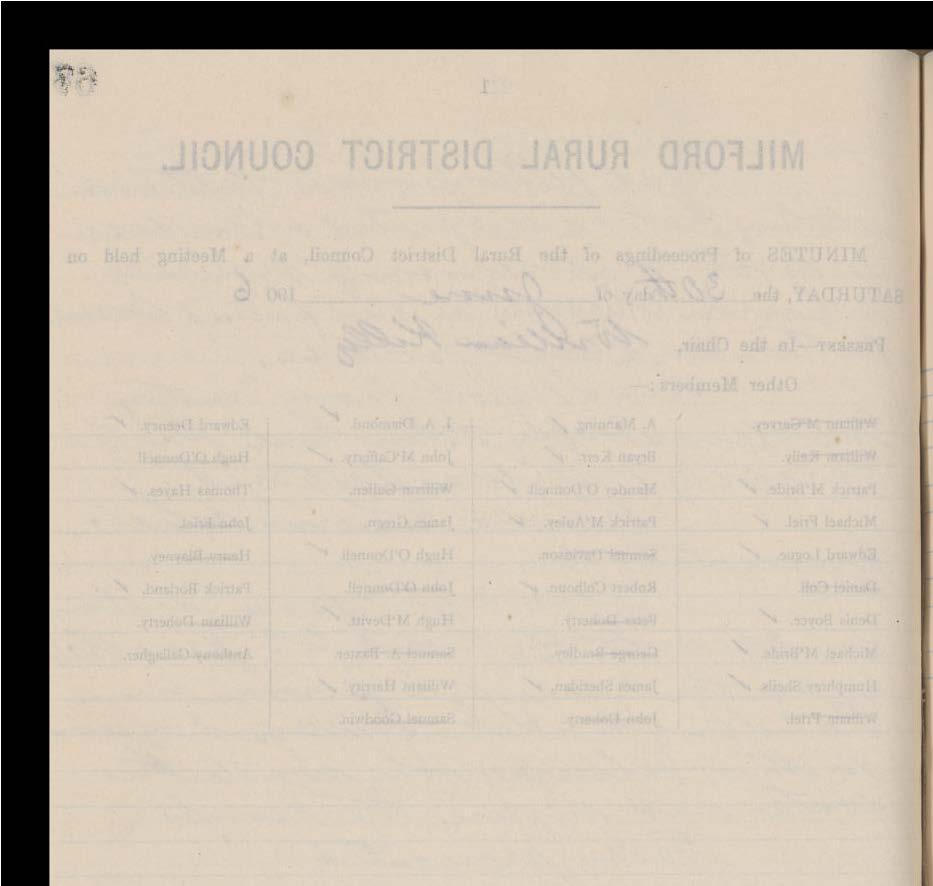 MILFORD RURAL DISTRICT COUNCIL.
MINUTES of Proceedings of the Rural District Council, at a Meeting held on
SATURDAY, the 30th day of 190 6
PRESENT—In the Chair, William Kelly
Other Members:—
William M'Garvey. A. Manning ✓ J. A. Diamond. ✓ Edward Deeney. ✓
William Kelly. Bryan Kerr. ✓ John M'Cafferty. ✓ Hugh O'Donnell
Patrick M'Bride. ✓ Mander O'Donnell ✓ William Cullen. Thomas Hayes. ✓
Michael Friel. ✓ Patrick M'Auley. ✓ James Green. John Friel.
Edward Logue. ✓ Samuel Davidson. Hugh O'Donnell ✓ Henry Blayney
Daniel Coll. Robert Calhoun. ✓ John O'Donnell. Patrick Borland. ✓
Denis Boyce. ✓ Peter Doherty. Hugh M'Devitt. ✓ William Doherty.
Michael M'Bride. ✓ George Bradley. Samuel A. Baxter. Anthony Gallagher.
Humphrey Sheils. ✓ James Sheridan. ✓ William Harrity. ✓
William Friel. John Doherty. Samuel Goodwin.